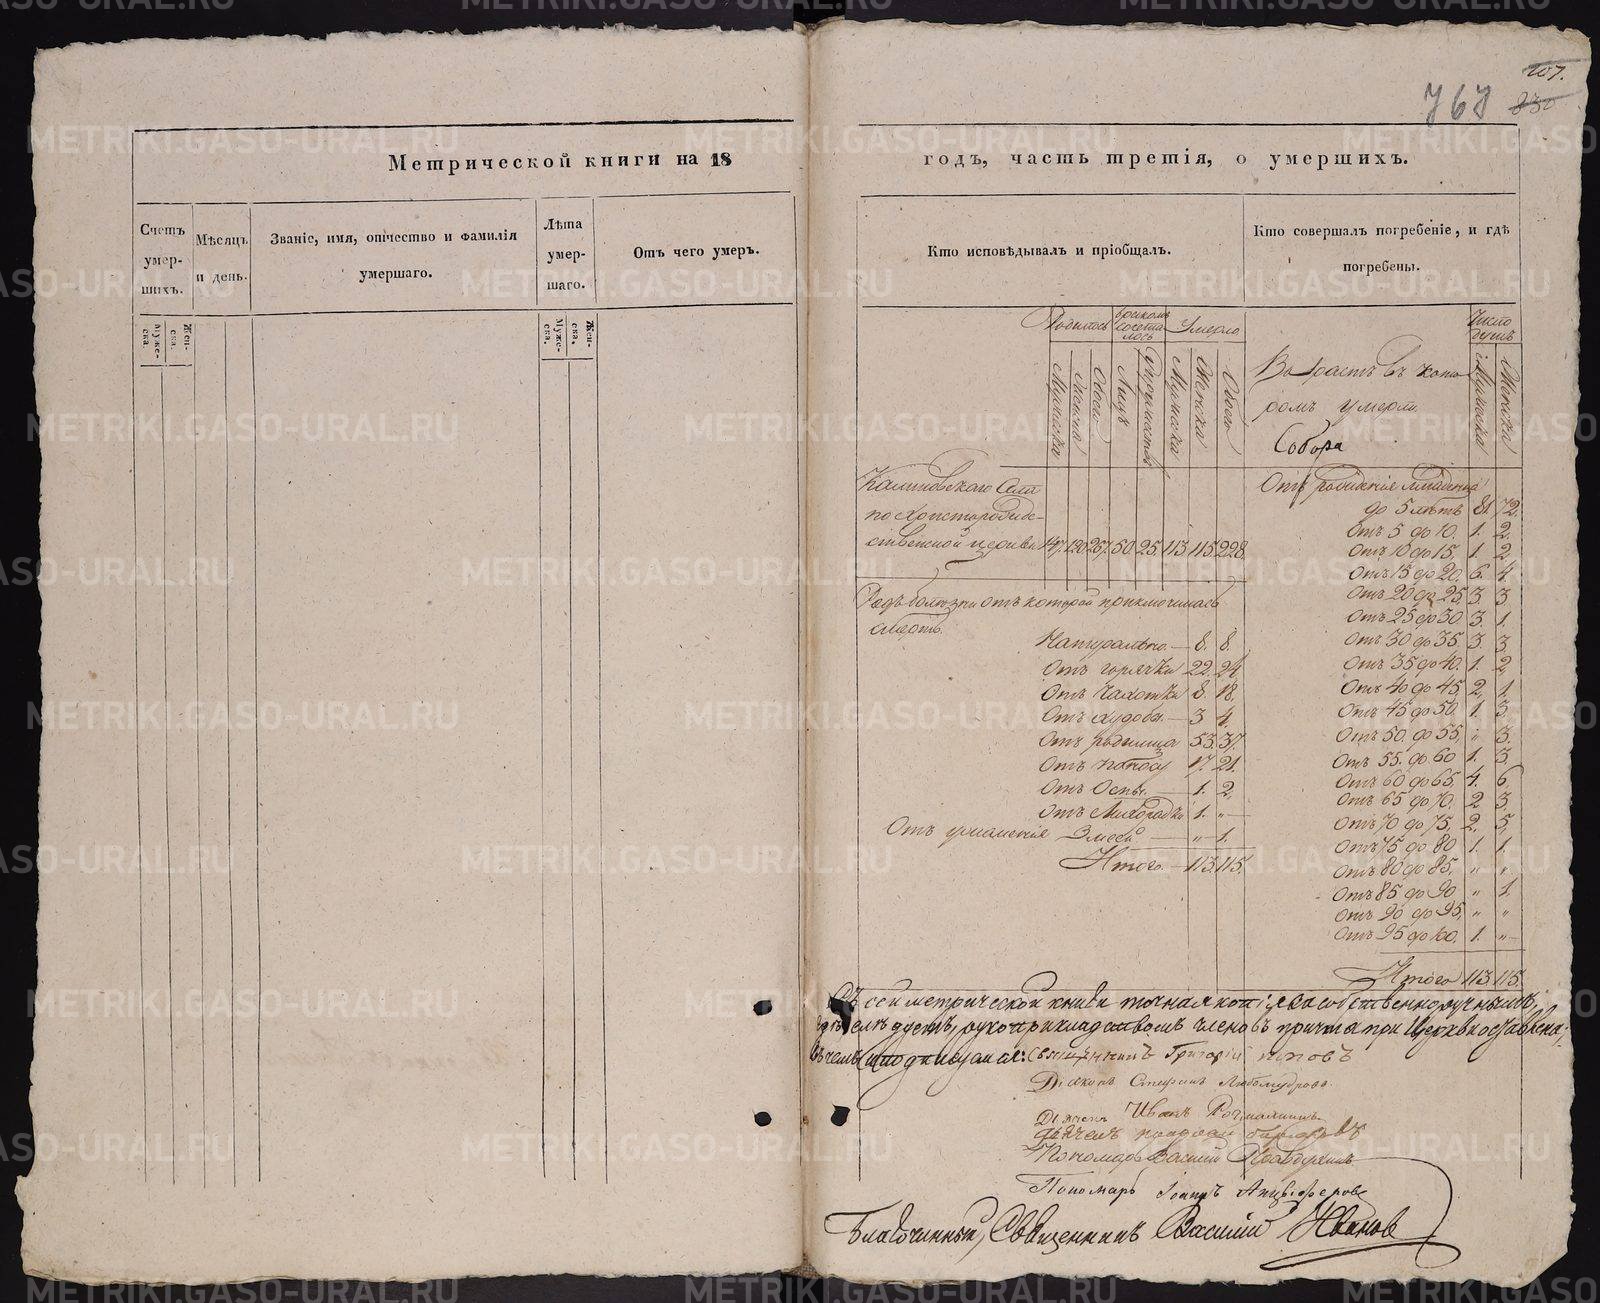 207.
767 230
Метрической книги на 18
годъ, часть третія, о умершихъ.
Счетъ умер-шихъ.
Мѣсяцъ и день.
Званіе, имя, отчество и фамилія умершаго.
Лѣта умер-шаго.
Отъ чего умеръ.
Кто исповѣдывалъ и пріобщалъ.
Кто совершалъ погребеніе, и гдѣ погребены.
Муже-ска.
Жен-ска.
Муже-ска.
Жен-ска.
Родилось
бракомъ сочета лось
Умерло
Число душъ
Мужеска
Обоего
Лицъ
Мужеска
Женска
Обоего
Возрастъ въ кото
ромъ умерли
Собора
Мужеска
Женска
Калиновскаго Села
по Христорожде-
ственской церкви 147. 120 267. 50. 25. 113. 115. 228.
Отъ рожденія младенца
до 5 лѣтъ 81. 72.
Отъ 5 до 10. 1. 2.
Отъ 10 до 15. 1. 2.
Отъ 15 до 20. 6. 4.
Отъ 20 до 25 3. 3.
Отъ 25 до 30 3. 1.
Отъ 30 до 35. 3. 3.
Отъ 35 до 40. 1. 2.
Отъ 40 до 45 2. 1.
Отъ 45 до 50. 1. 3.
Отъ 50. до 55. „ 3.
Отъ 55. до 60 1. 3.
Отъ 60 до 65. 4. 6.
Отъ 65 до 70. 2 3.
Отъ 70 до 75. 2. 5.
Отъ 75 до 80 1. 1.
Отъ 80 до 85. „ „
Отъ 85 до 90 „ 1.
Отъ 90 до 95. „ „
Отъ 95 до 100. 1. „
Итого 113. 115.
Родъ болѣзни отъ которой приключилась
смерть.
Натурально. — 8. 8.
Отъ горячки 22. 24.
Отъ чахотки 8. 18.
Отъ худобы. — 3 4.
Отъ родимца 53. 37.
Отъ поносу 17. 21.
Отъ Оспы. — 1. 2.
Отъ Лихорадки 1. „
Отъ ужаленія Змеей — „ 1.
Итого. — 113. 115.
Съ сей метрической книги точная копія за собственноручнымъ,
рукоприкладствомъ членовъ причта при Церкви оставлена;
въ чемъ и подписуемся: Священникъ Григорій Поповъ
Діаконъ Стефанъ Любомудровъ.
Дьячекъ Иванъ
Дьячекъ
Пономарь Василій
Пономарь Іоаннъ Анциферовъ
Благочинный, Священникъ Василій Ивановъ
METRIKI.GASO-URAL.RU